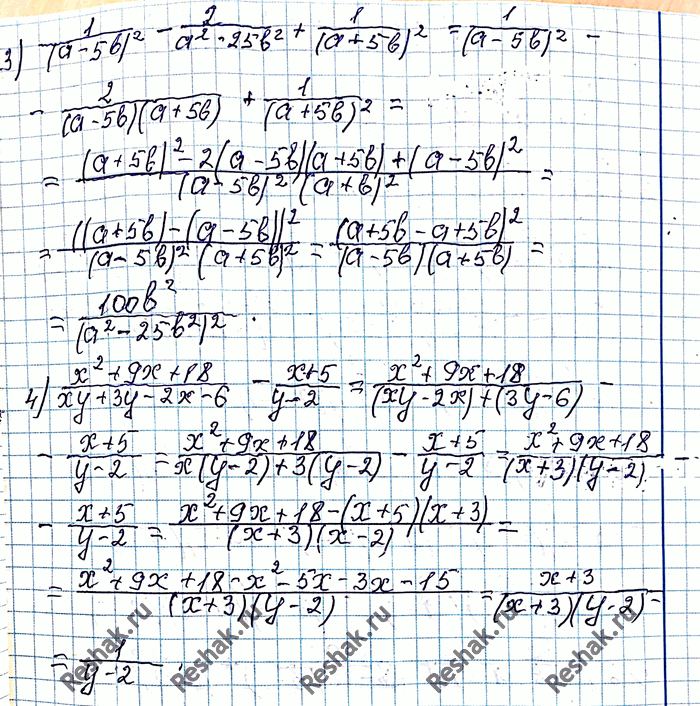 3) 1/(a-5b)² - 2/a²-25b² + 1/(a+5b)² = 1/(a-5b)² -
- 2/(a-5b)(a+5b) + 1/(a+5b)² =
= (a+5b)²-2(a-5b)(a+5b)+(a-5b)²/(a-5b)²(a+b)² =
= ((a+5b)-(a-5b))²/(a-5b)²(a+5b)² = (a+5b-a+5b)²/(a-5b)(a+5b) =
= 100b²/(a²-25b²)² .
4) x²+9x+18/xy+3y-2x-6 - x+5/y-2 = x²+9x+18/(xy-2x)+(3y-6) -
- x+5/y-2 = x²+9x+18/x(y-2)+3(y-2) - x+5/y-2 = x²+9x+18/(x+3)(y-2) -
- x+5/y-2 = x²+9x+18-(x+5)(x+3)/(x+3)(x-2) =
= x²+9x+18-x²-5x-3x-15/(x+3)(y-2) = x+3/(x+3)(y-2) =
= 1/y-2 .
Reshak.ru Reshak.ru Reshak.ru Reshak.ru Reshak.ru